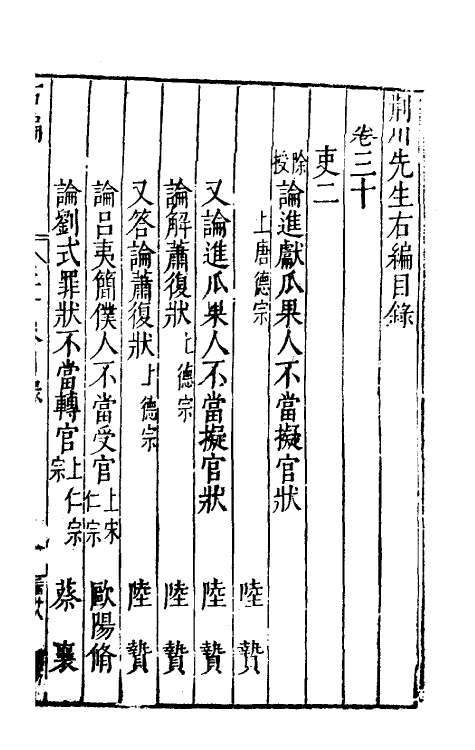 荆川先生右編目錄
卷三十
吏二
除授 論進獻瓜果人不當擬官狀
上唐德宗 陸贄
又論進瓜果人不當擬官狀 陸贄
論解蕭復狀 上德宗 陸贄
又答論蕭復狀 上德宗 陸贄
論呂夷簡僕人不當受官 上宋仁宗 歐陽脩
論劉式罪狀不當轉官 上仁宗 蔡襄